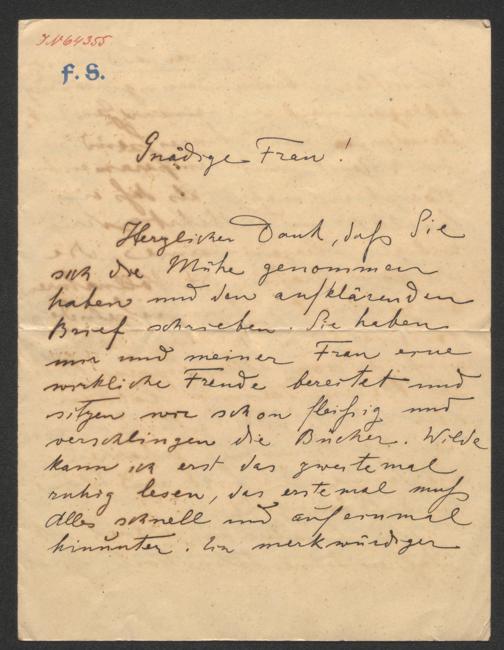 IN 64355
F. S.
Gnädige Frau!
Herzlichen Dank, daß Sie
sich die Mühe genommen
haben und den aufklärenden
Brief schrieben. Sie haben
mir und meiner Frau eine
wirkliche Freude bereitet und
sitzen wir schon fleißig und
verschlingen die Bücher. Wilde
kann ich erst das zweitemal
ruhig lesen, das erstemal muß
Alles schnell und auf einmal
hinunter. Ein merkwürdiger